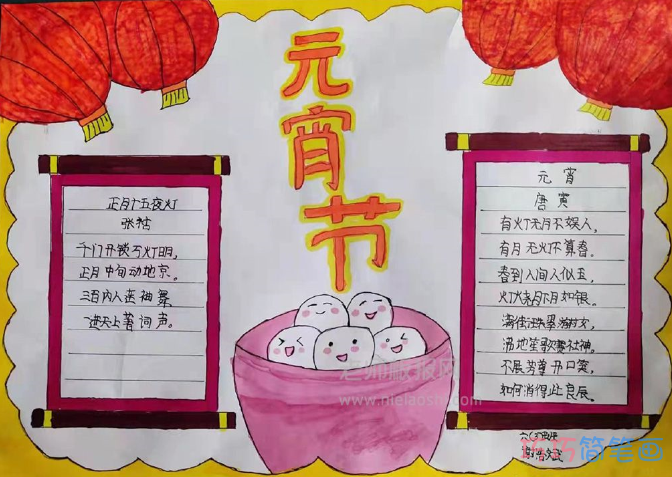 元宵节
正月十五夜灯
张祜
千门开锁万灯明,
正月中旬动地京。
三百内人连袖舞
进天上著词声。
元宵
唐寅
有灯无月不娱人,
有月无灯不算春。
春到人间人似玉,
灯烧月下月如银。
满街珠翠游村女,
沸地笙歌赛社神。
不展芳尊开口笑,
如何消得此良辰。
老师板报网
www.nielaoshi.com
巧巧简笔画